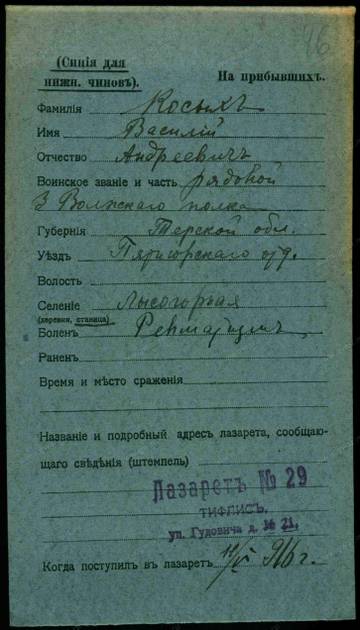 46
(Синія для
нижн. чиновъ).
На прибывшихъ.
Фамилія Косыхъ
Имя Василій
Отчество Андреевичъ
Воинское званіе и часть рядовой
3 Волжскаго полка
Губернія Терской обл.
Уѣздъ Пятигорскаго отд.
Волость
Селеніе Лысогорская
(деревня, станица)
Боленъ Ревматизмъ
Раненъ
Время и мѣсто сраженія
Названіе и подробный адресъ лазарета, сообщаю-
щаго свѣдѣнія (штемпель)
Лазаретъ № 29
ТИФЛИСЪ,
ул. Гудовича д. № 21.
Когда поступилъ въ лазаретъ 916 г.